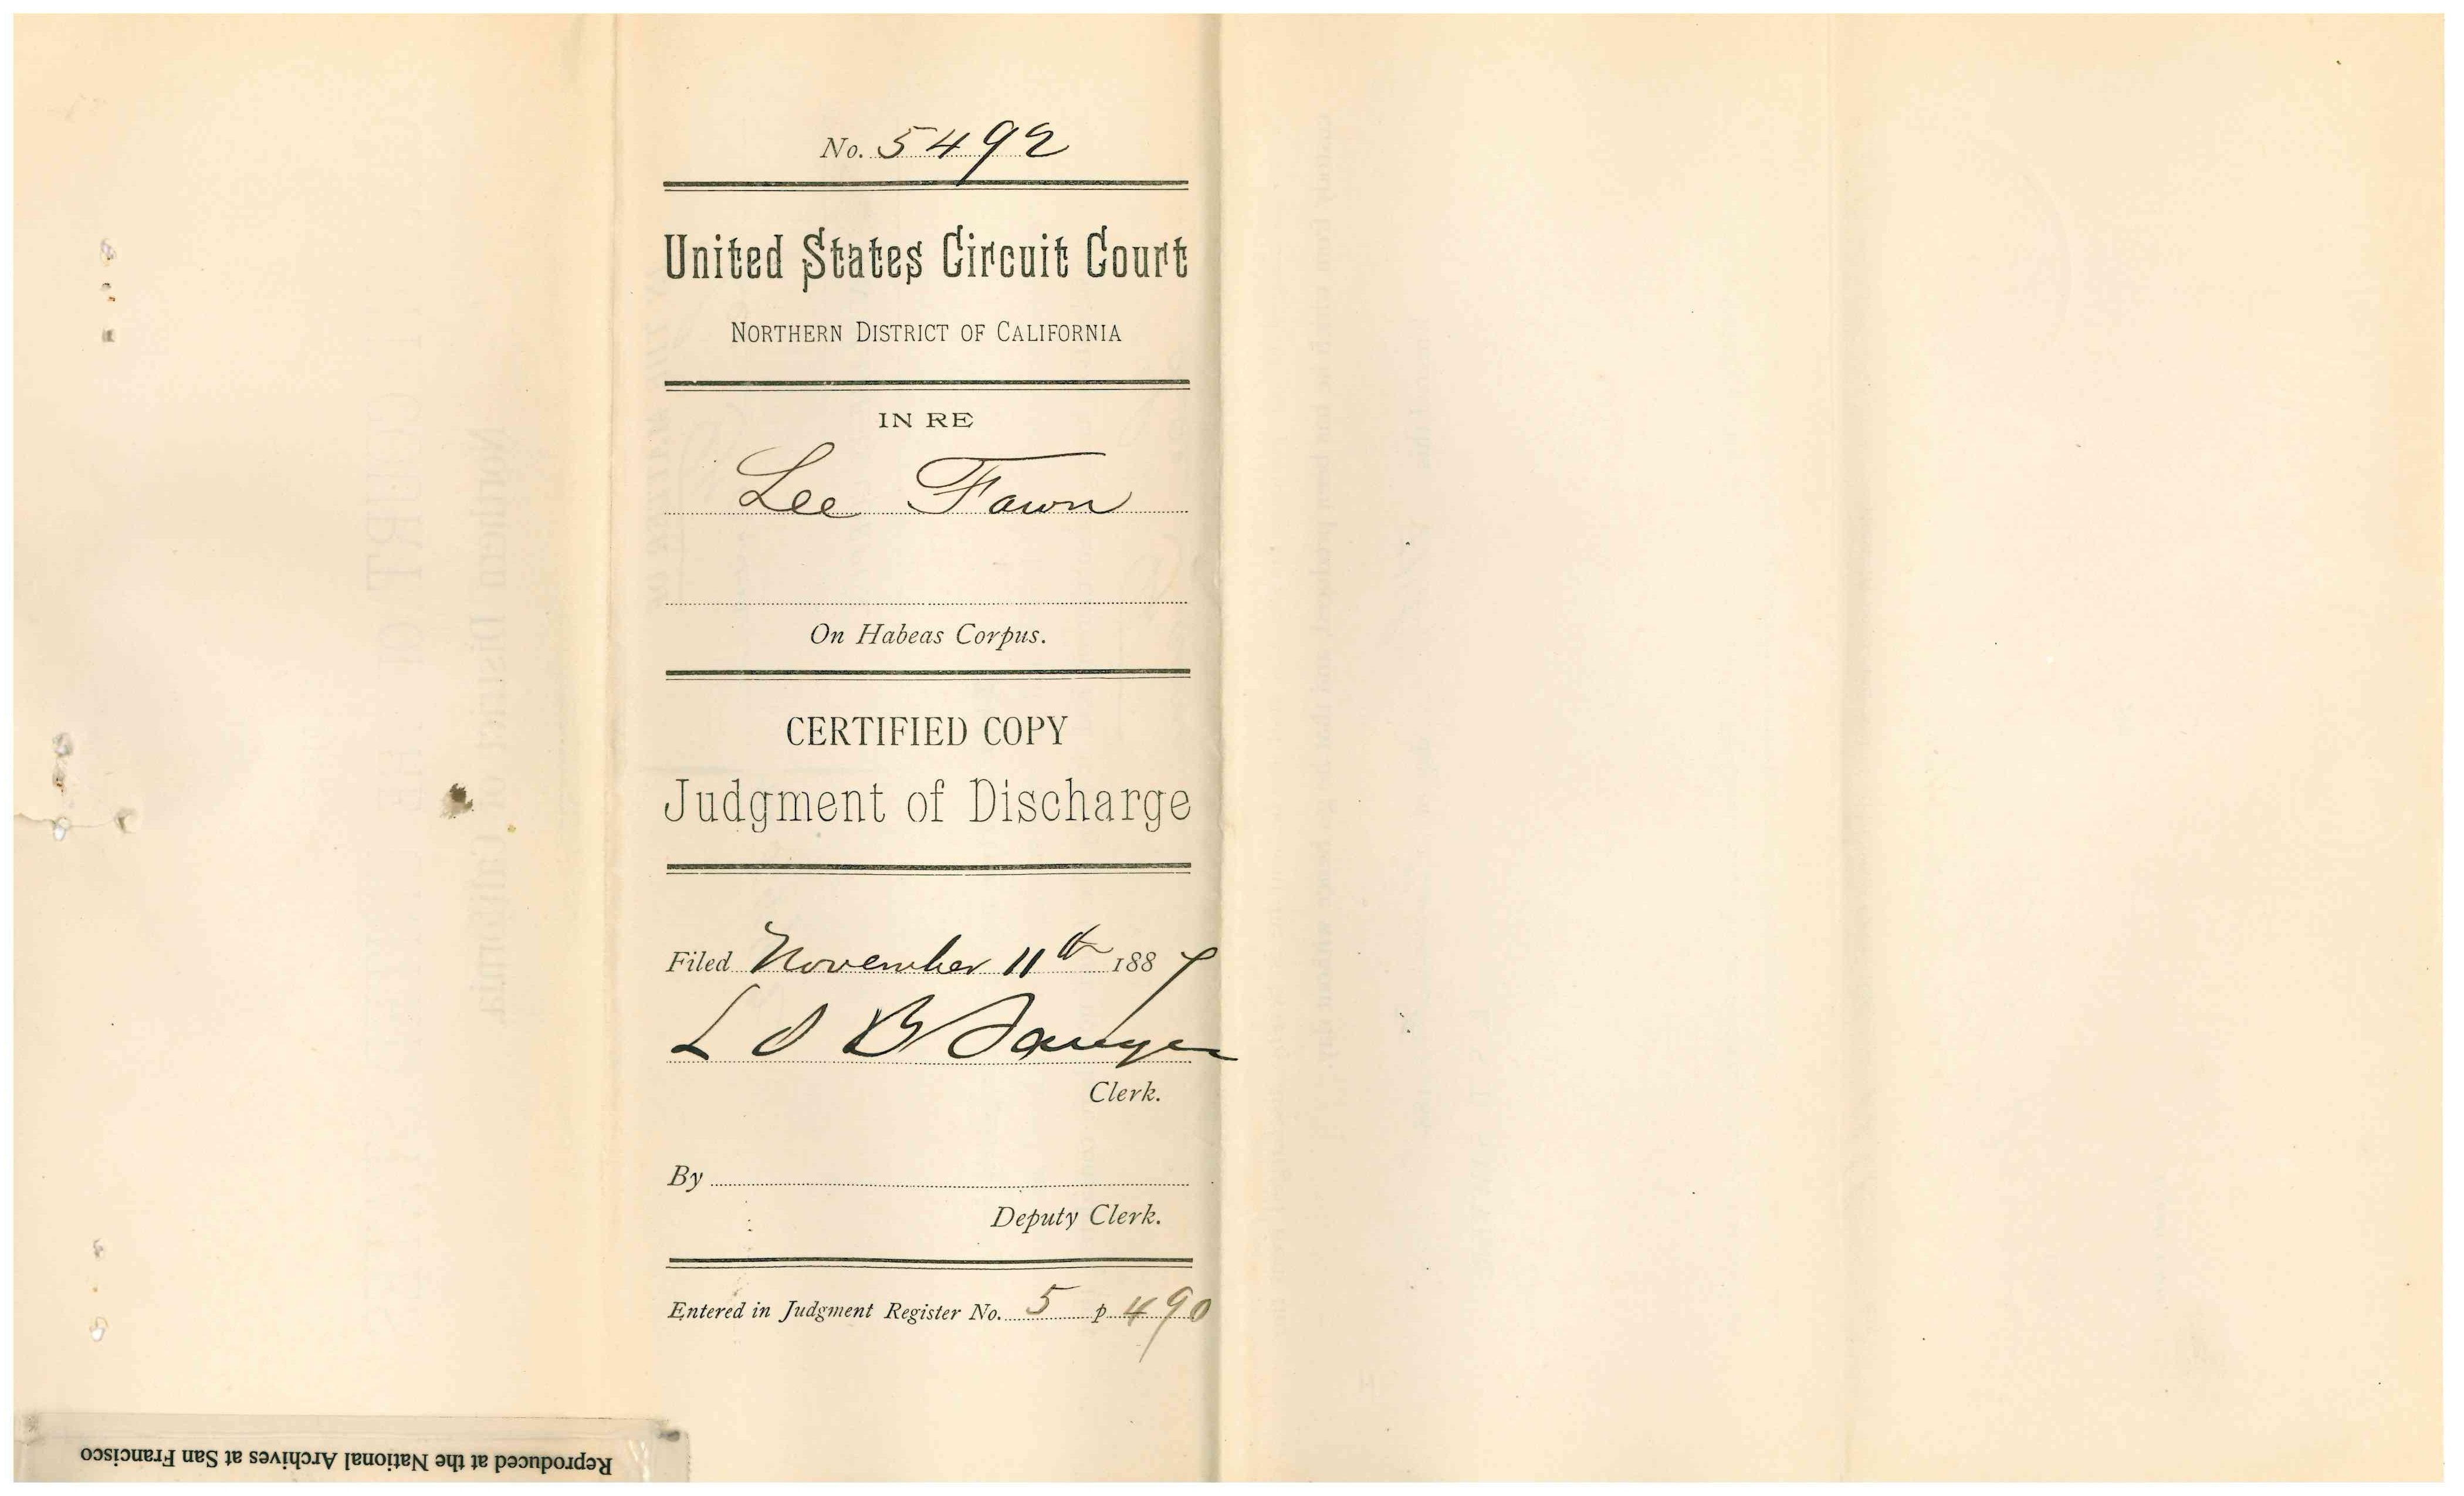 No. 5492
United States Circuit Court
NORTHERN DISTRICT OF CALIFORNIA
IN RE
Lee Fawn
On Habeas Corpus.
CERTIFIED COPY
Judgment of Discharge
Filed November 11th 1887
L S B Sawyer
Clerk.
By
Deputy Clerk.
Entered in Judgment Register No. 5 p 490
Reproduced at the National Archives at San Francisco